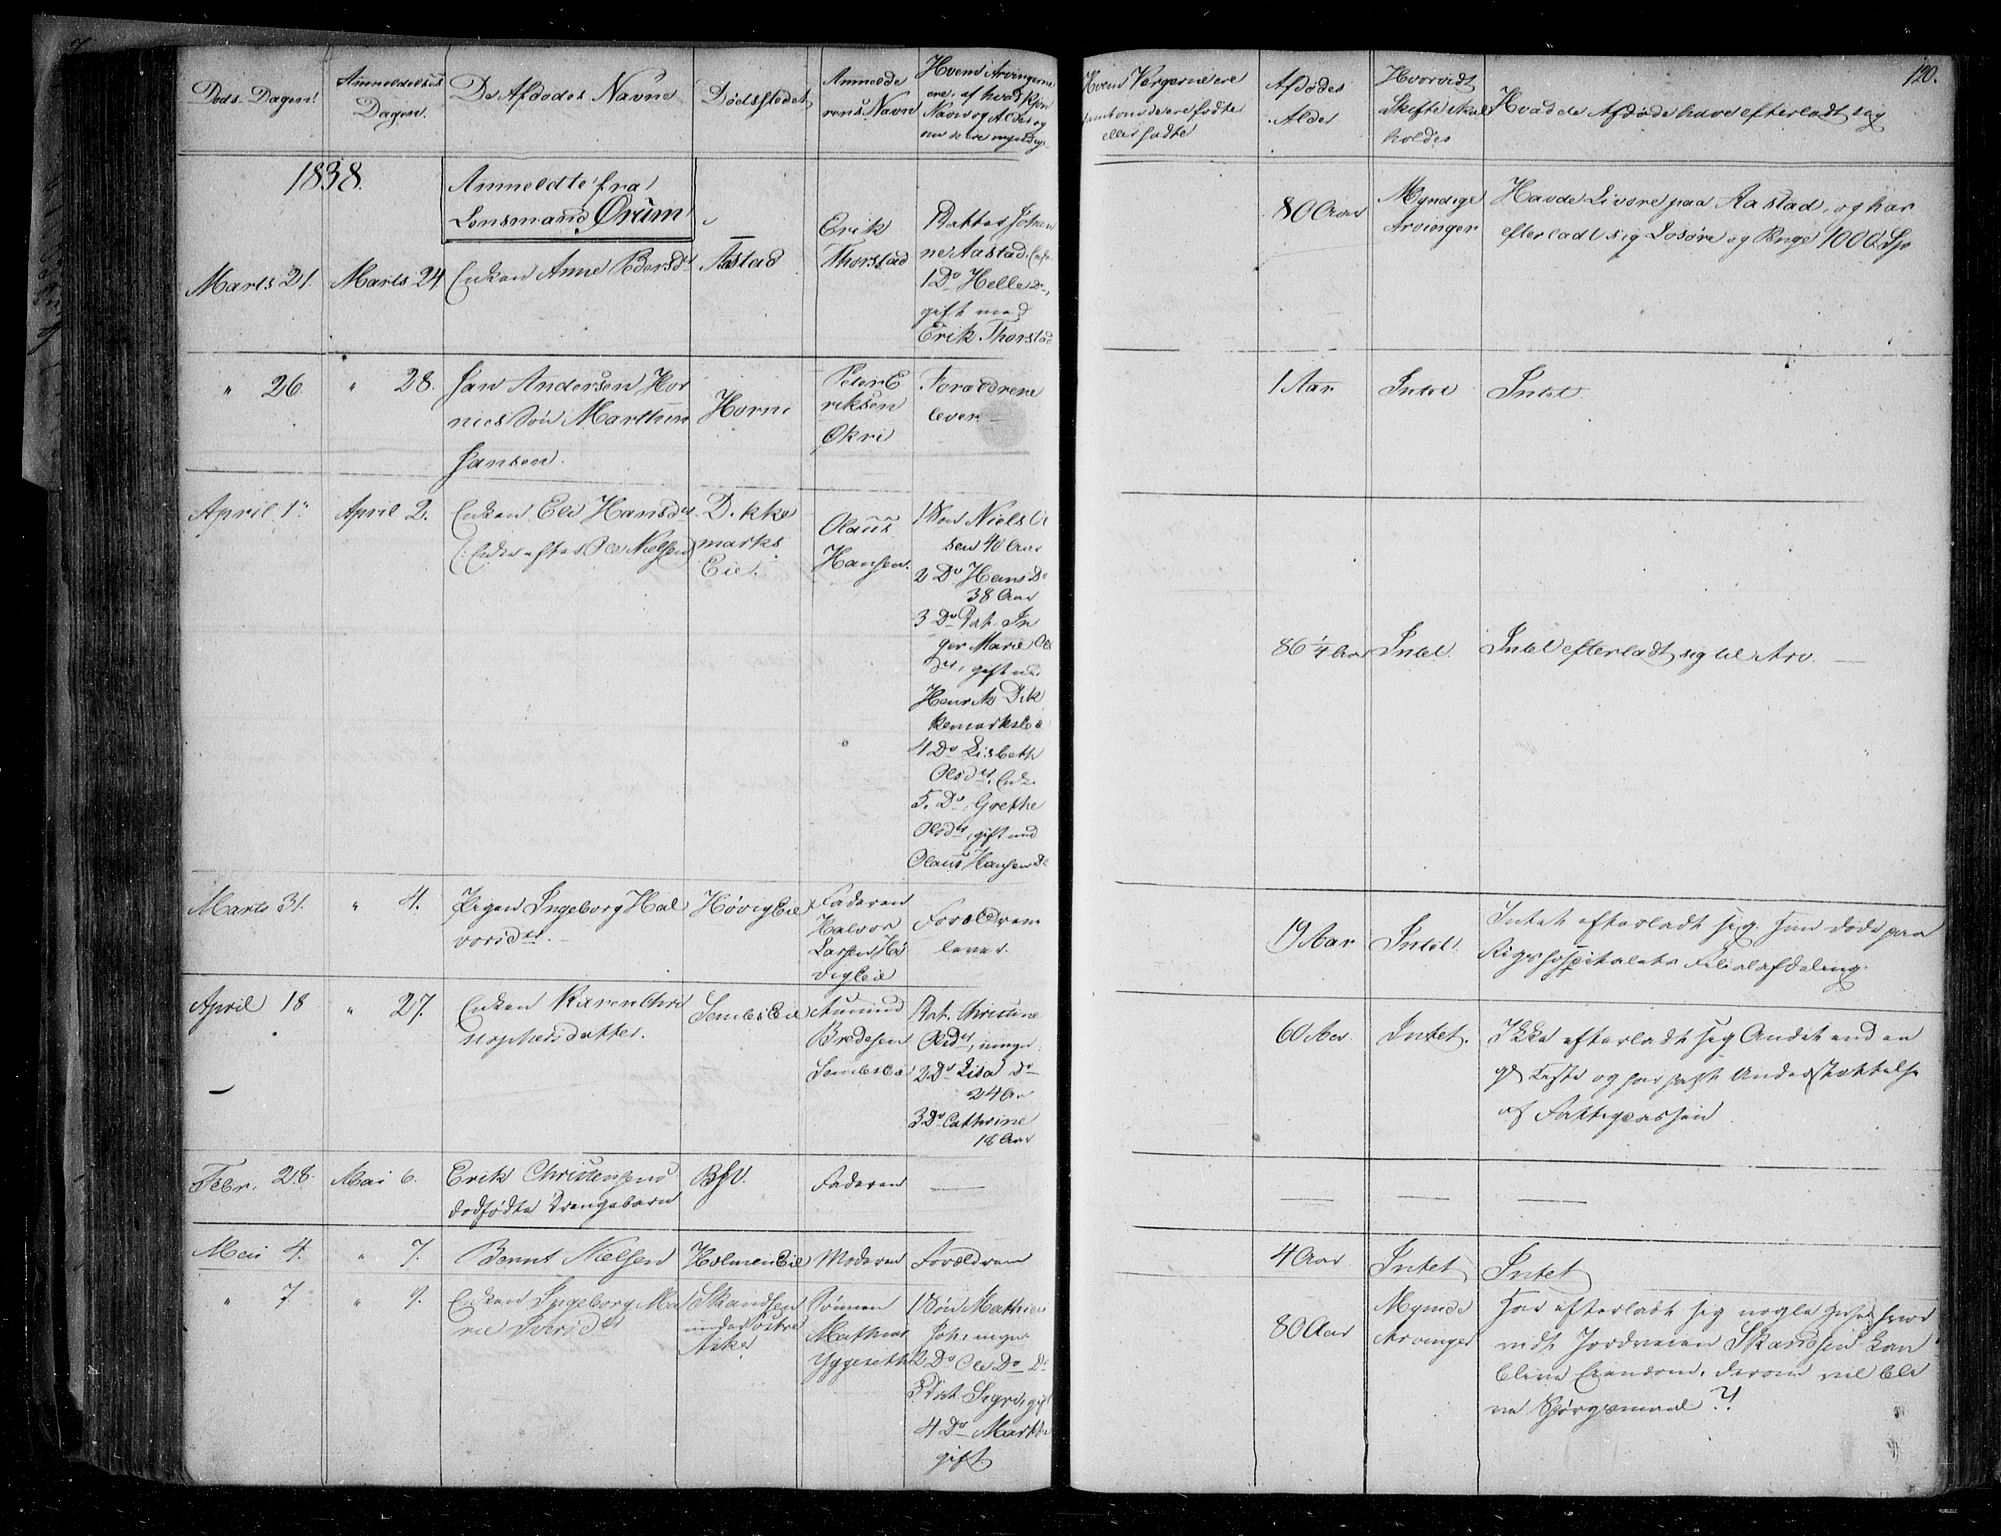 120.
Døds-Dagen
Anmeldelses
Dagen.
De Afdødes Navne
Dødsstedet
Anmelde
rens Navn
Hvem Arvingerne
ere, af hvad Kjøn
Navn og Alder og
om de ere myndige
Hvem Vergerne ere
samt om de ere fødte
eller satte
Afdødes
Alder
Hvorvidt
Skifte skal
holdes
Hvad de Afdøde have efterladt sig
1838.
Anmeldte fra
Lensmand Ørum
Marts 21.
Marts 24
Enken Anne Pedersdr
Aastad
Erik
Thorstad
Datter Johan
ne Aastad, Enke
1 Do Helle Do,
gift med
Erik Thorstad
80 Aar
Myndige
Arvinger
Havde Livøre paa Aastad, og har
efterladt sig Løsøre og Penge 1000 Sp
" 26.
" 28.
Jan Andersen Hor
nies Søn Marthin
Jansen.
Horni
Peter E
riksen
Økri
Forældrene
lever
1 Aar
Intet
Intet
April 1.
April 2.
Enken Eli Hansdr
(: Enke efter Ole Nielsen)
Dikke
marks
Eie.
Olaus
Hansen.
1 Søn Niels Ol
sen 40 Aar
2 Do Hans Do
38 Aar
3 Dat. In
ger Marie Ols
dr, gift med
Henrik Dik
kemarkseie
4 Do Lisbeth
Olsdr. Enke
5. Do, Grethe
Olsdr, gift med
Olaus Hansen
86 1/4 Aar
Intet.
Intet efterladt sig til Arv.
Marts 31.
" 4.
Pigen Ingeborg Hal
vorsdr.
Høvig Eie
Faderen
Halvor
Larsen Hø
vig Eie
Forældrene
lever.
19 Aar
Intet
Intet efterladt sig. Hun døde paa
Rigshospitalets Filialafdeling.
April 18
" 27.
Enken Karen Chri
stophersdatter.
Sems Eie
Amund
Bredesen
Semseie
Dat. Christine
Olsdr,
2 Do Lisa Do
24 Aar
3 Do Cathrine
18 Aar
60 Aar
Intet.
Ikke efterladt sig Andet end en
gl Kiste og har havt Understøttelse
af Fattigcassen
Febr. 28.
Mai 6.
Erik Christensens
dødfødte Drengebarn
Faderen
Mai 4.
" 7.
Bernt Nielsen
Holmen Eie
Moderen
Forældrene
4 Aar
Intet
Intet
" 7
" 9.
Enken Ingeborg Ma
rie Iversdr
Skandsen
under Østre
Asker
Sønnen
Mathias
Yggesett
1 Søn Mathias
2 Do Ole Do
3 Dat Sigri, gift
4 Do Marthe
gift.
80 Aar
Mynde
Arvinger
Har efterladt sig nogle Huse, hvor
vidt Jordveien Skandsen kan
blive Eiendom, derom vil bli
ve Spørgsmaal ?!